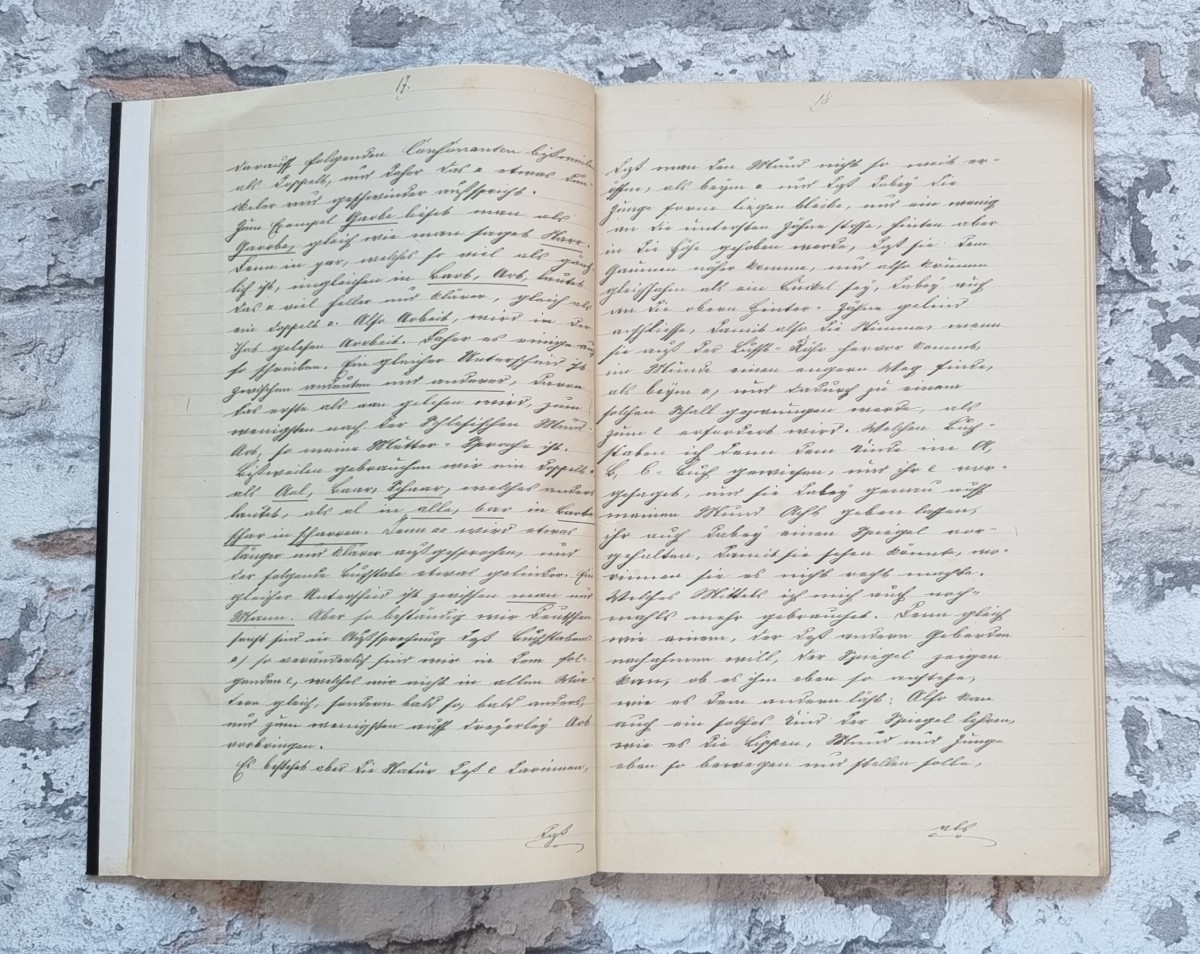 17.
darauff folgenden Consonanten bißweilen
als doppelt, und daher das a etwas dun-
ckeler und geschwinder außspricht.
Zum Exempel Garbe lieset man als
Garrbe, gleich wie man saget Narr.
Denn in gar, welches so viel als gäntz-
lich ist, imgleichen in Barb, Art, lautet
das a viel heller und klärer, gleich als
ein doppelt a. Also Arbeit, wird in der
That gelesen Arrbeit. Daher es einige auch
so schreiben. Ein gleicher Unterscheid ist
zwischen andeuten und anderer, davon
das erste als ann gelesen wird, zum
wenigsten nach der Schlesischen Mund-
Art, so meine Mutter-Sprache ist.
Bißweilen gebrauchen wir ein doppelt a
als Aal, Baar, Schaar, welches anders
lautet, als al in alle, bar in Barbe
schar in scharren. Denn aa wird etwas
länger und klärer außgesprochen, und
der folgende Buchstabe etwas gelinder. Ein
gleicher Unterscheid ist zwischen man und
Mann. Aber so beständig wir Deutschen
sonst sind in Außsprechung deß Buchstabens
a, so veränderlich sind wir in dem fol-
genden e, welches wir nicht in allen Wör-
tern gleich, sondern bald so, bald anders,
und zum wenigsten auff dreyerley Art
vorbringen.
Es bestehet aber die Natur deß e darinnen,
daß
18
daß man den Mund nicht so weit er-
öffne, als beym a und daß dabey die
Zunge forne liegen bleibe, und ein wenig
an die untersten Zähne stosse, hinten aber
in die Höhe gehoben werde, daß sie dem
Gaumen näher komme, und also krumm
gleichsam als ein Buckel sey, dabey auch
an die obern Hinter-Zähne gelind
anschliesse, damit also die Stimme, wenn
sie auß der Lufft-Röhre hervor kommt,
im Munde einen engern Weg finde,
als beym a, und dadurch zu einem
solchen Schall gezwungen werde, als
zum e erfordert wird. Welchen Buch-
staben ich denn dem Kinde im A,
B, C-Buch gewiesen, und ihr e vor-
gesaget, und sie dabey genau auff
meinen Mund Acht geben lassen,
ihr auch dabey einen Spiegel vor-
gehalten, damit sie sehen könnte, wo-
rinnen sie es nicht recht machte.
Welches Mittels ich mich auch noch-
mahls mehr gebrauchet. Denn gleich
wie einem, der deß andern Geberden
nachahmen will, der Spiegel zeigen
kan, ob es ihm eben so anstehe,
wie es dem andern läst: Also kan
auch ein solches Kind der Spiegel lehren,
wie es die Lippen, Mund und Zunge
eben so bewegen und stellen solle,
als